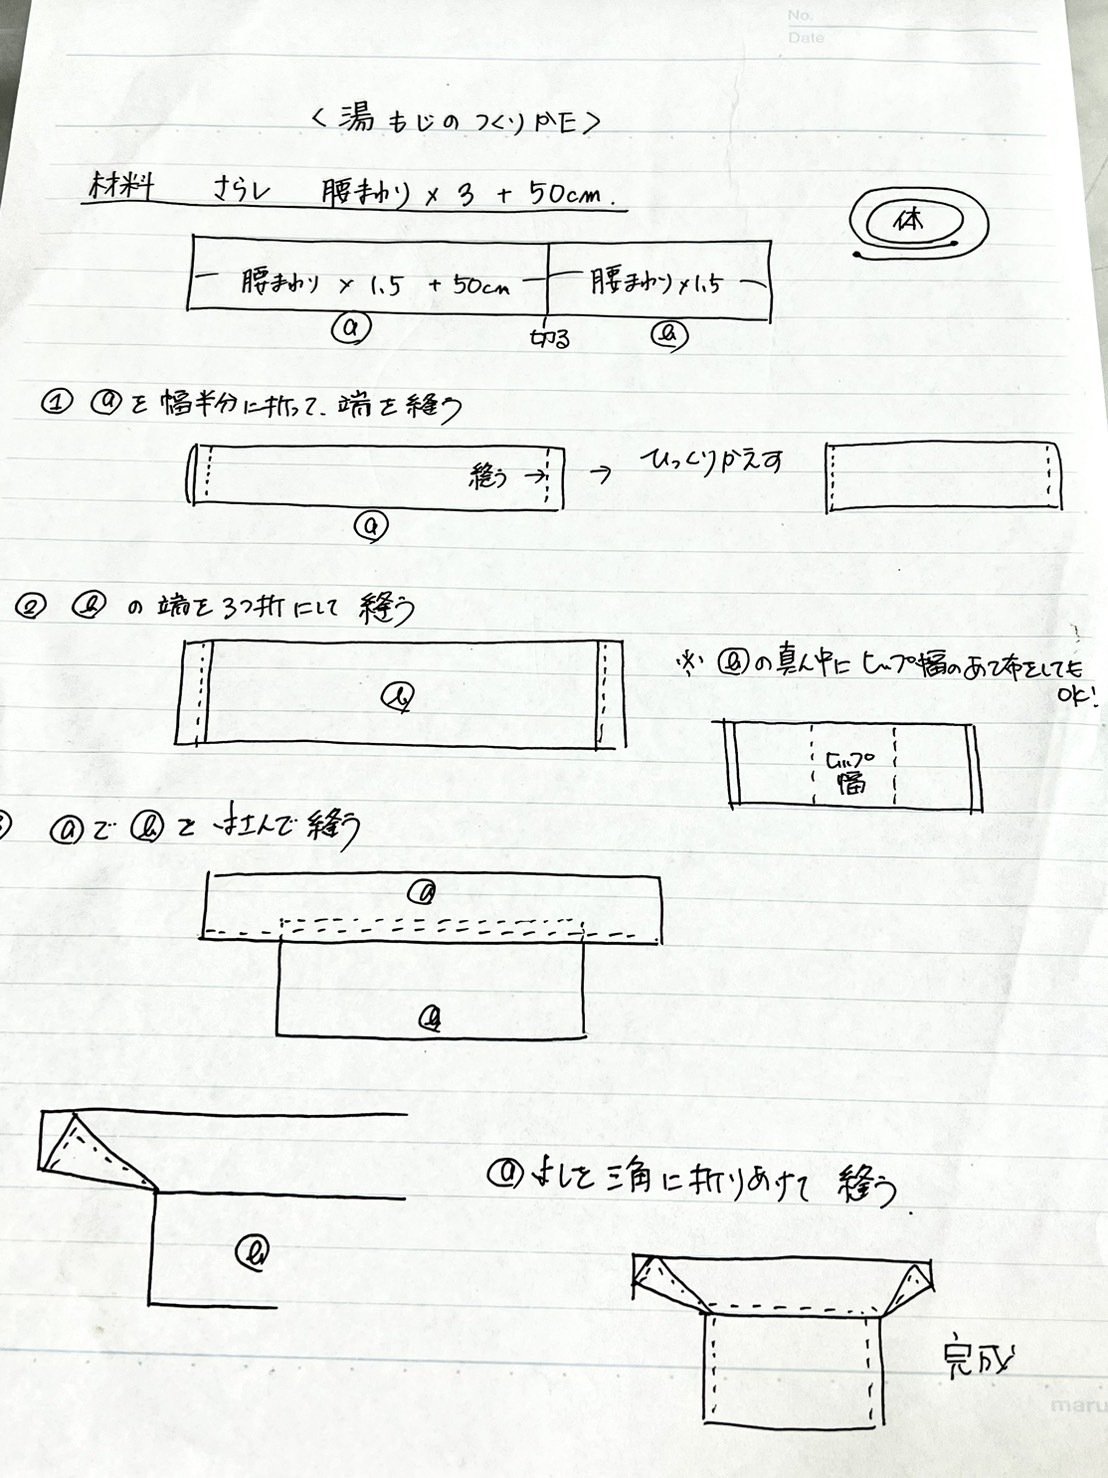 No.
Date
<湯もじのつくりかた>
材料 さらし 腰まわり × 3 + 50cm.
体
腰まわり × 1.5 + 50cm
腰まわり×1.5
ⓐ
切る
ⓑ
① ⓐを幅半分に折って、端を縫う
縫う→
→ ひっくりかえす
ⓐ
② ⓑの端を3つ折にして縫う
ⓑ
※ ⓑの真ん中にヒップ幅のあて布をしても
OK!
ヒップ
幅
③ ⓐでⓑをはさんで縫う
ⓐ
ⓑ
ⓐはしを三角に折りあげて縫う.
ⓑ
完成
maru